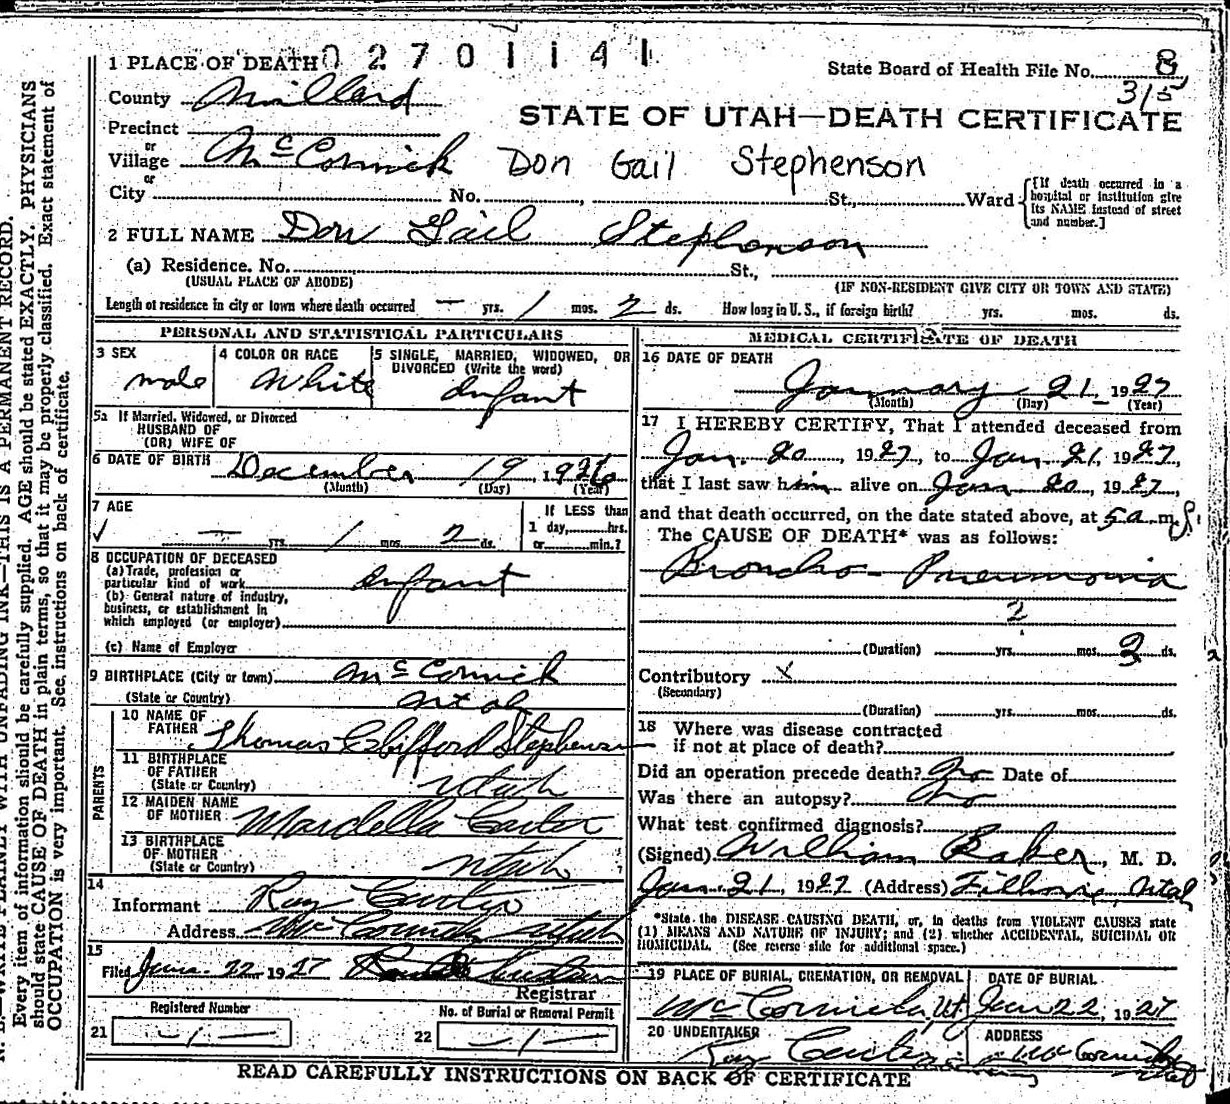 0 2 7 0 1 1 4 1
1 PLACE OF DEATH
State Board of Health File No. 8
315
County Millard
STATE OF UTAH—DEATH CERTIFICATE
Precinct
or
Village McCornick
Don Gail Stephenson
or
City No. St., Ward
[If death occurred in a hospital or institution give its NAME instead of street and number.]
2 FULL NAME Don Gail Stephenson
(a) Residence. No. St.,
(USUAL PLACE OF ABODE)
(IF NON-RESIDENT GIVE CITY OR TOWN AND STATE)
Length of residence in city or town where death occurred — yrs. 1 mos. 2 ds. How long in U. S., if foreign birth? yrs. mos. ds.
PERSONAL AND STATISTICAL PARTICULARS
3 SEX
male
4 COLOR OR RACE
White
5 SINGLE, MARRIED, WIDOWED, OR
DIVORCED (Write the word)
Infant
5a If Married, Widowed, or Divorced
HUSBAND OF
(OR) WIFE OF
6 DATE OF BIRTH December 19 1926
(Month) (Day) (Year)
7 AGE
— yrs. 1 mos. 2 ds.
If LESS than
1 day, hrs.
or min.?
8 OCCUPATION OF DECEASED
(a) Trade, profession or
particular kind of work Infant
(b) General nature of industry,
business, or establishment in
which employed (or employer)
(c) Name of Employer
9 BIRTHPLACE (City or town) McCornick
(State or Country) Utah
PARENTS
10 NAME OF
FATHER Thomas Clifford Stephenson
11 BIRTHPLACE
OF FATHER
(State or Country) Utah
12 MAIDEN NAME
OF MOTHER Mardella Carter
13 BIRTHPLACE
OF MOTHER
(State or Country) Utah
14
Informant Ray Carter
Address McCornick Utah
15
Filed Jan. 22 1927
Registrar
Registered Number
21 —1—
No. of Burial or Removal Permit
22 —1—
MEDICAL CERTIFICATE OF DEATH
16 DATE OF DEATH
January 21 1927
(Month) (Day) (Year)
17 I HEREBY CERTIFY, That I attended deceased from
Jan. 20, 1927, to Jan 21, 1927,
that I last saw him alive on Jan 20, 1927,
and that death occurred, on the date stated above, at 5 a m.
The CAUSE OF DEATH* was as follows:
Broncho- Pneumonia
2
(Duration) yrs. mos. 3 ds.
Contributory X
(Secondary)
(Duration) yrs. mos. ds.
18 Where was disease contracted
if not at place of death?
Did an operation precede death? No Date of
Was there an autopsy? No
What test confirmed diagnosis?
(Signed) William Baker, M. D.
Jan. 21, 1927 (Address) Fillmore, Utah
*State the DISEASE CAUSING DEATH, or, in deaths from VIOLENT CAUSES state
(1) MEANS AND NATURE OF INJURY; and (2) whether ACCIDENTAL, SUICIDAL OR
HOMICIDAL. (See reverse side for additional space.)
19 PLACE OF BURIAL, CREMATION, OR REMOVAL
McCornick, Ut.
DATE OF BURIAL
Jan 22, 1927
20 UNDERTAKER
Ray Carter
ADDRESS
McCornick Utah
READ CAREFULLY INSTRUCTIONS ON BACK OF CERTIFICATE
WRITE PLAINLY WITH UNFADING INK—THIS IS A PERMANENT RECORD.
Every item of information should be carefully supplied. AGE should be stated EXACTLY. PHYSICIANS
should state CAUSE OF DEATH in plain terms, so that it may be properly classified. Exact statement of
OCCUPATION is very important. See instructions on back of certificate.